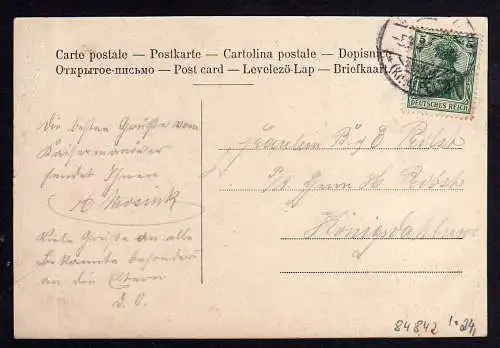 Carte postale — Postkarte — Cartolina postale — Dopisni
Открытое-письмо — Post card — Levelezö-Lap — Briefkaar
5 5
DEUTSCHES REICH
Die besten Grüße vom
Kaisermanöver
sendet Ihnen
A Mosink
Viele Grüße an alle
Bekannte besonders
an die Eltern
d. O.
Fräulein B. & E Robst
Pr. Herrn H. Robst
84842 1=24,